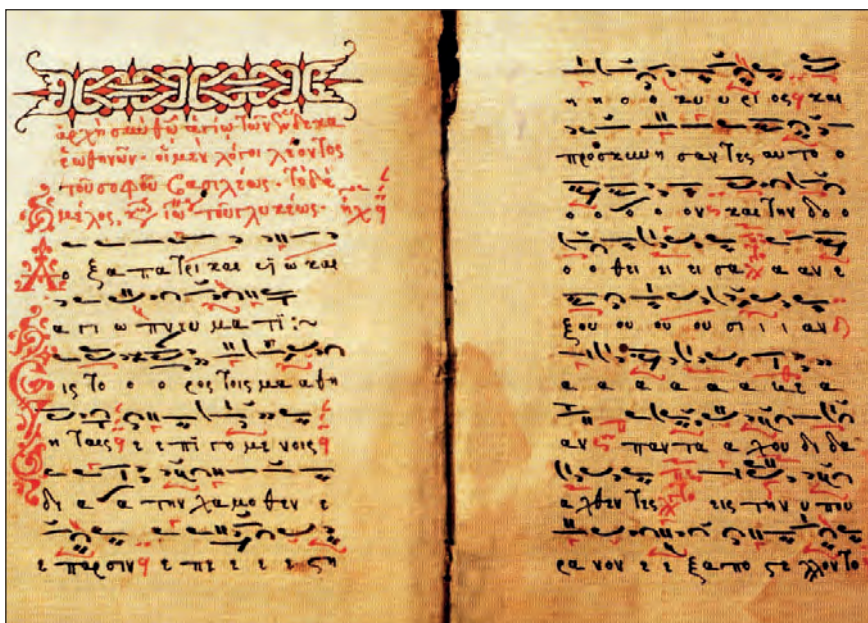 ἀρχὴ σὺν θῶ ἁγίω τῶν ἕνδεκα
ἑωθινῶν· οἱ μὲν λόγοι λέοντος
τοῦ σοφοῦ βασιλέως· τὸ δὲ
μέλος, τοῦ γλυκέως· ἦχ
Δ ο ξα πα τρι και υἱ ω και
α γι ω πνευ μα τι :~
Ε ις το ο ο ρος τοις μα α θη
η ταις ε ε πϊ γο με νοις
δι α α την χα μο θεν ε
ε παρσιν ε πε ε ε ε ςη
η η ο ο κυ υ ρι ος και
προσκυνη σαν τες αυ το ο
ο ο ο ο ον και την δο ο
ο ο θει ει ει σα α αν ε
ξου ου ου ου σι ι ι αν
α α α α α α α α
αν παν τα α χου δι δα
α χθεν τες εις την υ που
ρα νον ε ε ξα πο ςε λλον το